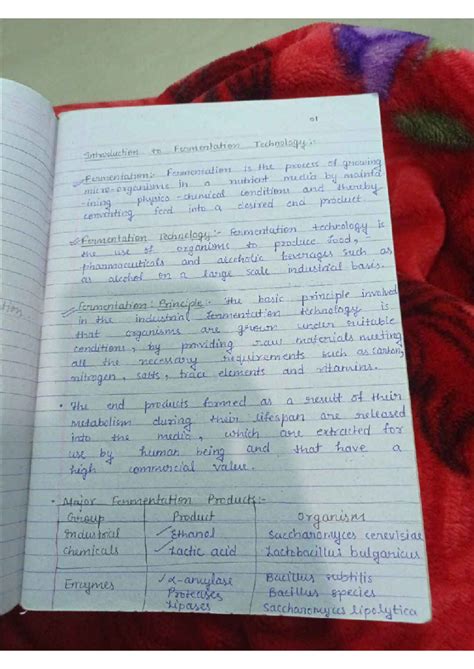 01
Introduction to Fermentation Technology:-
Fermentation:- Fermentation is the process of growing
micro-organisms in a nutrient media by mainta
-ining physico-chemical conditions and thereby
converting feed into a desired end product.
Fermentation Technology:- Fermentation technology is
the use of organisms to produce food,
pharmaceuticals and alcoholic beverages such as
as alcohol on a large scale industrial basis.
Fermentation: Principle:- The basic principle involved
in the industrial fermentation technology is
that organisms are grown under suitable
conditions, by providing raw materials meeting
all the necessary requirements such as carbon,
nitrogen, salts, trace elements and vitamins.
• The end products formed as a result of their
metabolism during their lifespan are released
into the media, which are extracted for
use by human being and that have a
high commercial value.
• Major Fermentation Products:-
Group Product Organism
Industrial Ethanol Saccharomyces cerevisiae
Chemicals Lactic acid Lactobacillus bulgaricus
Enzymes α-amylase Bacillus subtilis
Proteases Bacillus species
Lipases Saccharomyces lipolytica